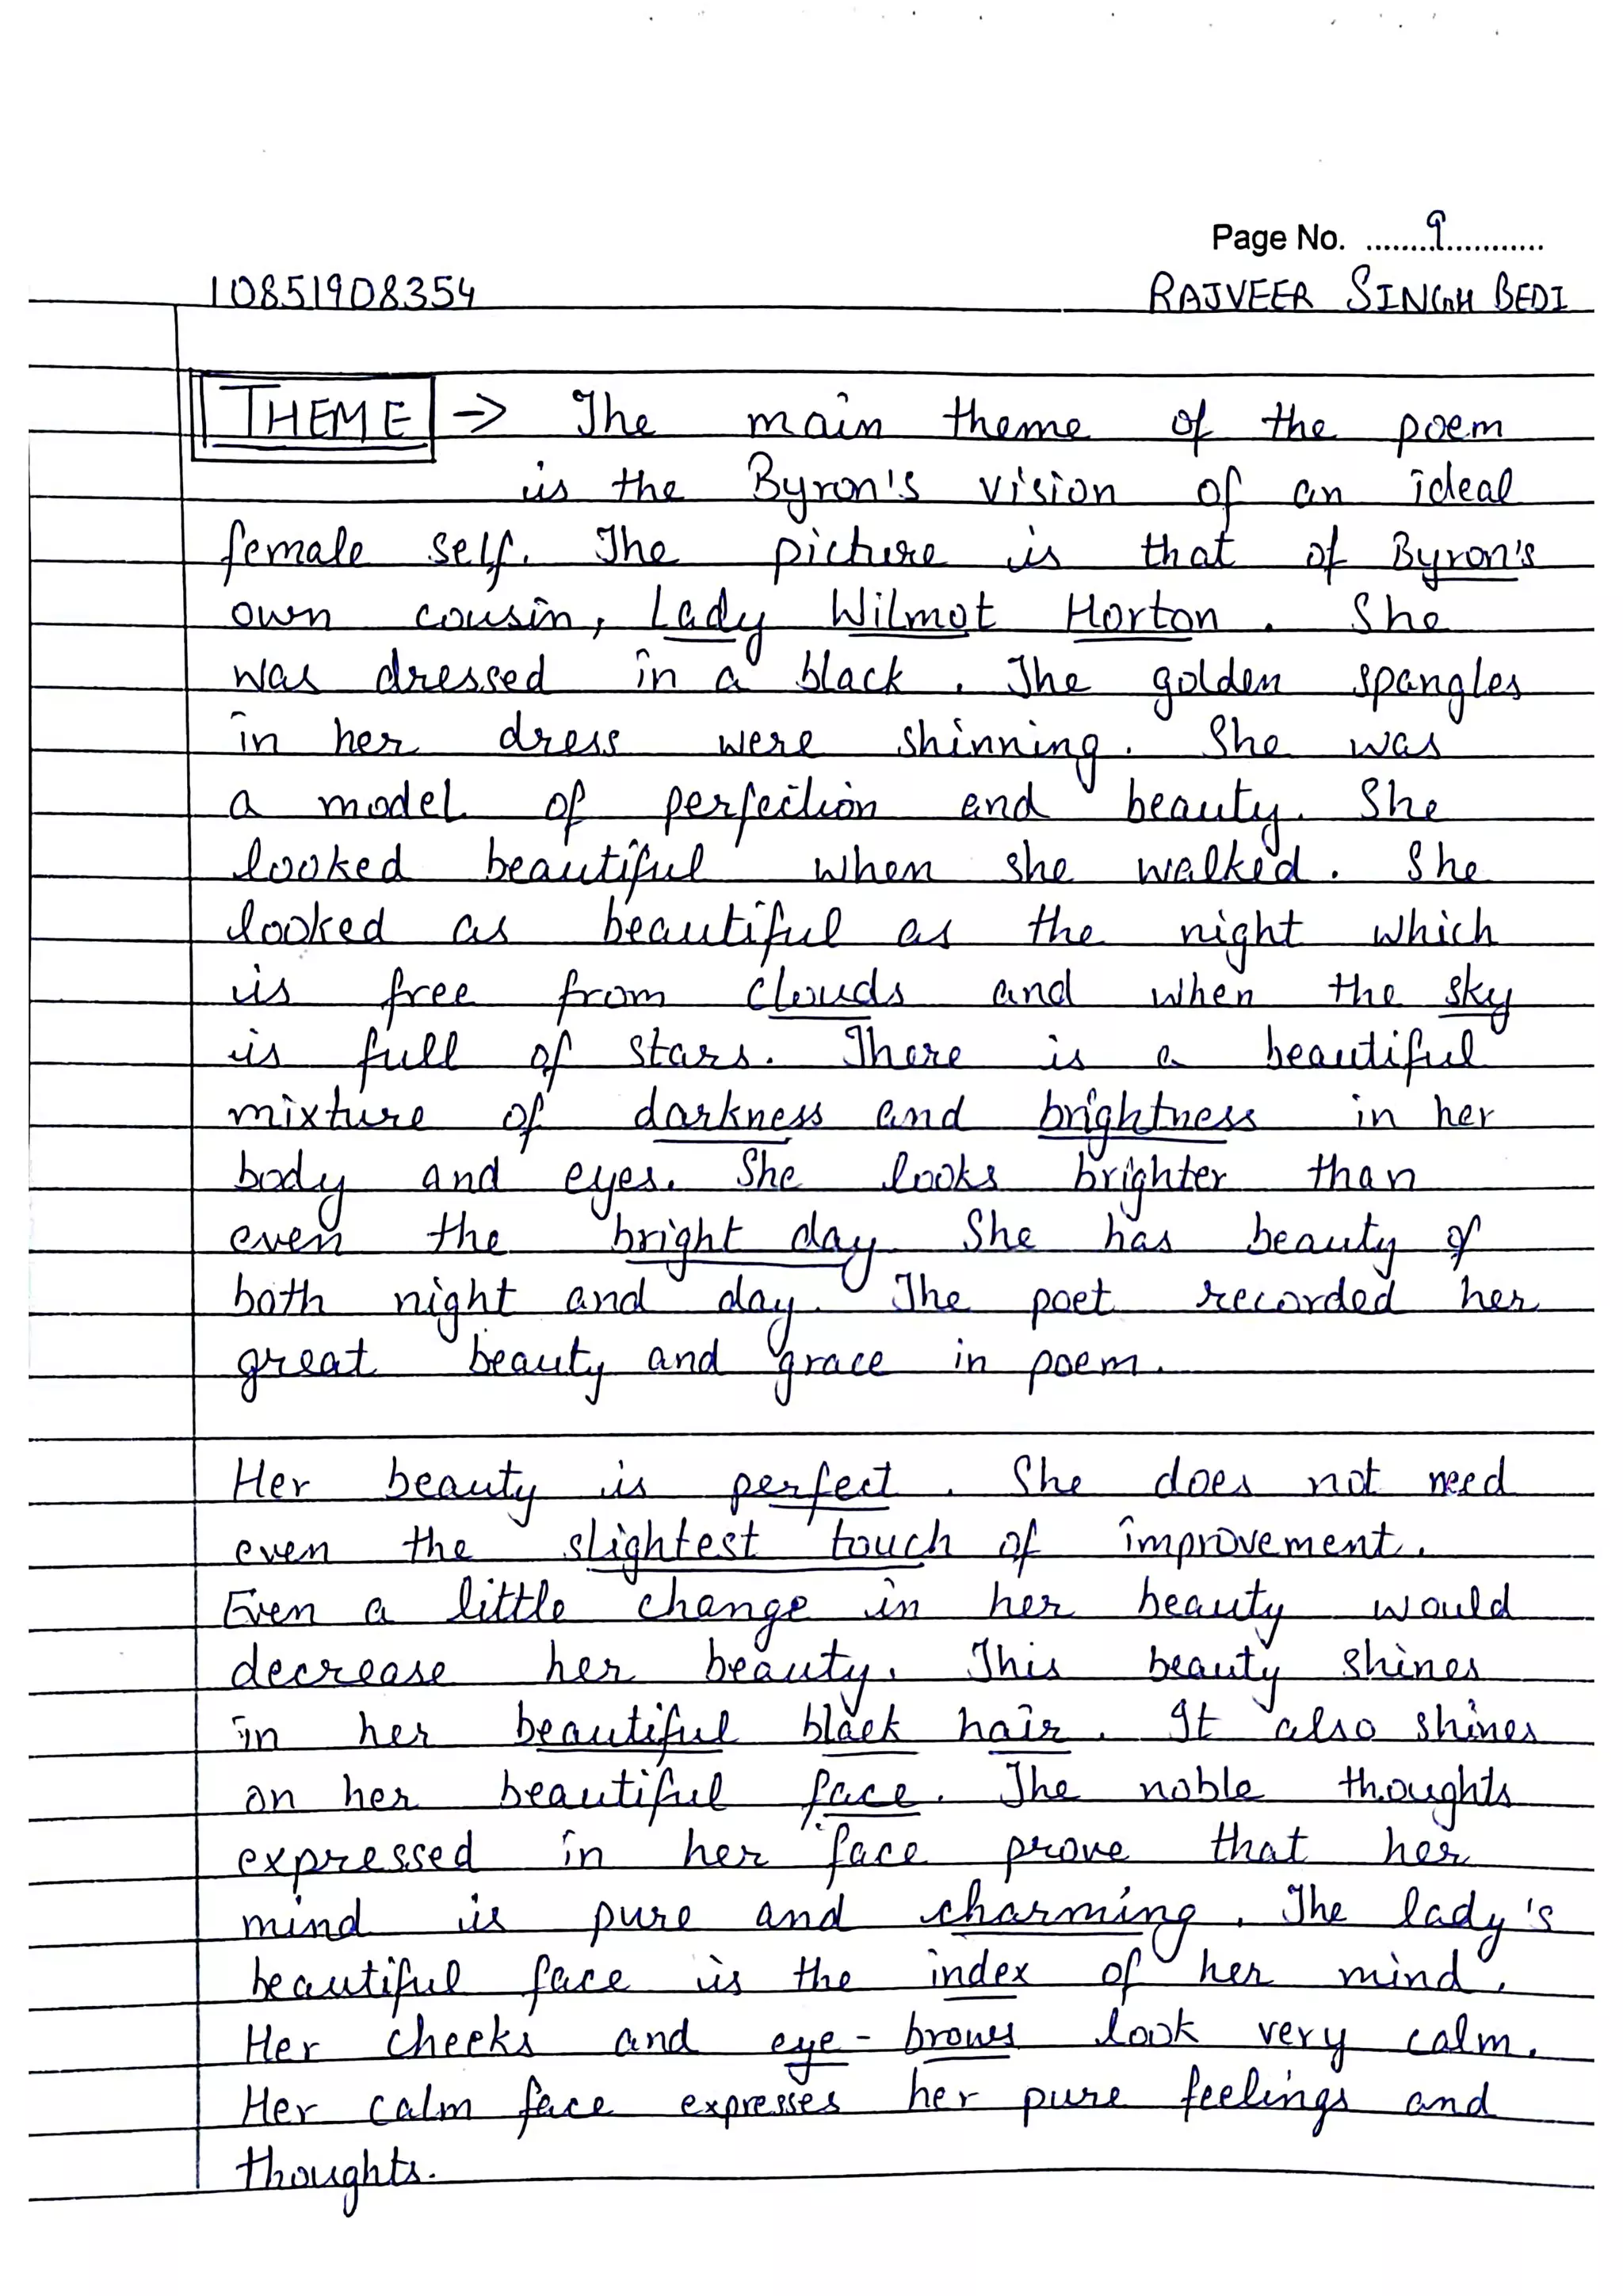 Page No. ........9............
10851908354 RAJVEER SINGH BEDI
THEME -> The main theme of the poem
is the Byron's vision of an ideal
female self. The picture is that of Byron's
own cousin, Lady Wilmot Horton. She
was dressed in a black. The golden spangles
in her dress were shinning. She was
a model of perfection and beauty. She
looked beautiful when she walked. She
looked as beautiful as the night which
is free from clouds and when the sky
is full of stars. There is a beautiful
mixture of darkness and brightness in her
body and eyes. She looks brighter than
even the bright day. She has beauty of
both night and day. The poet recorded her
great beauty and grace in poem.
Her beauty is perfect. She does not need
even the slightest touch of improvement.
Even a little change in her beauty would
decrease her beauty. This beauty shines
in her beautiful black hair. It also shines
on her beautiful face. The noble thoughts
expressed in her face prove that her
mind is pure and charming. The lady's
beautiful face is the index of her mind.
Her cheeks and eye-brows look very calm.
Her calm face expresses her pure feelings and
thoughts.